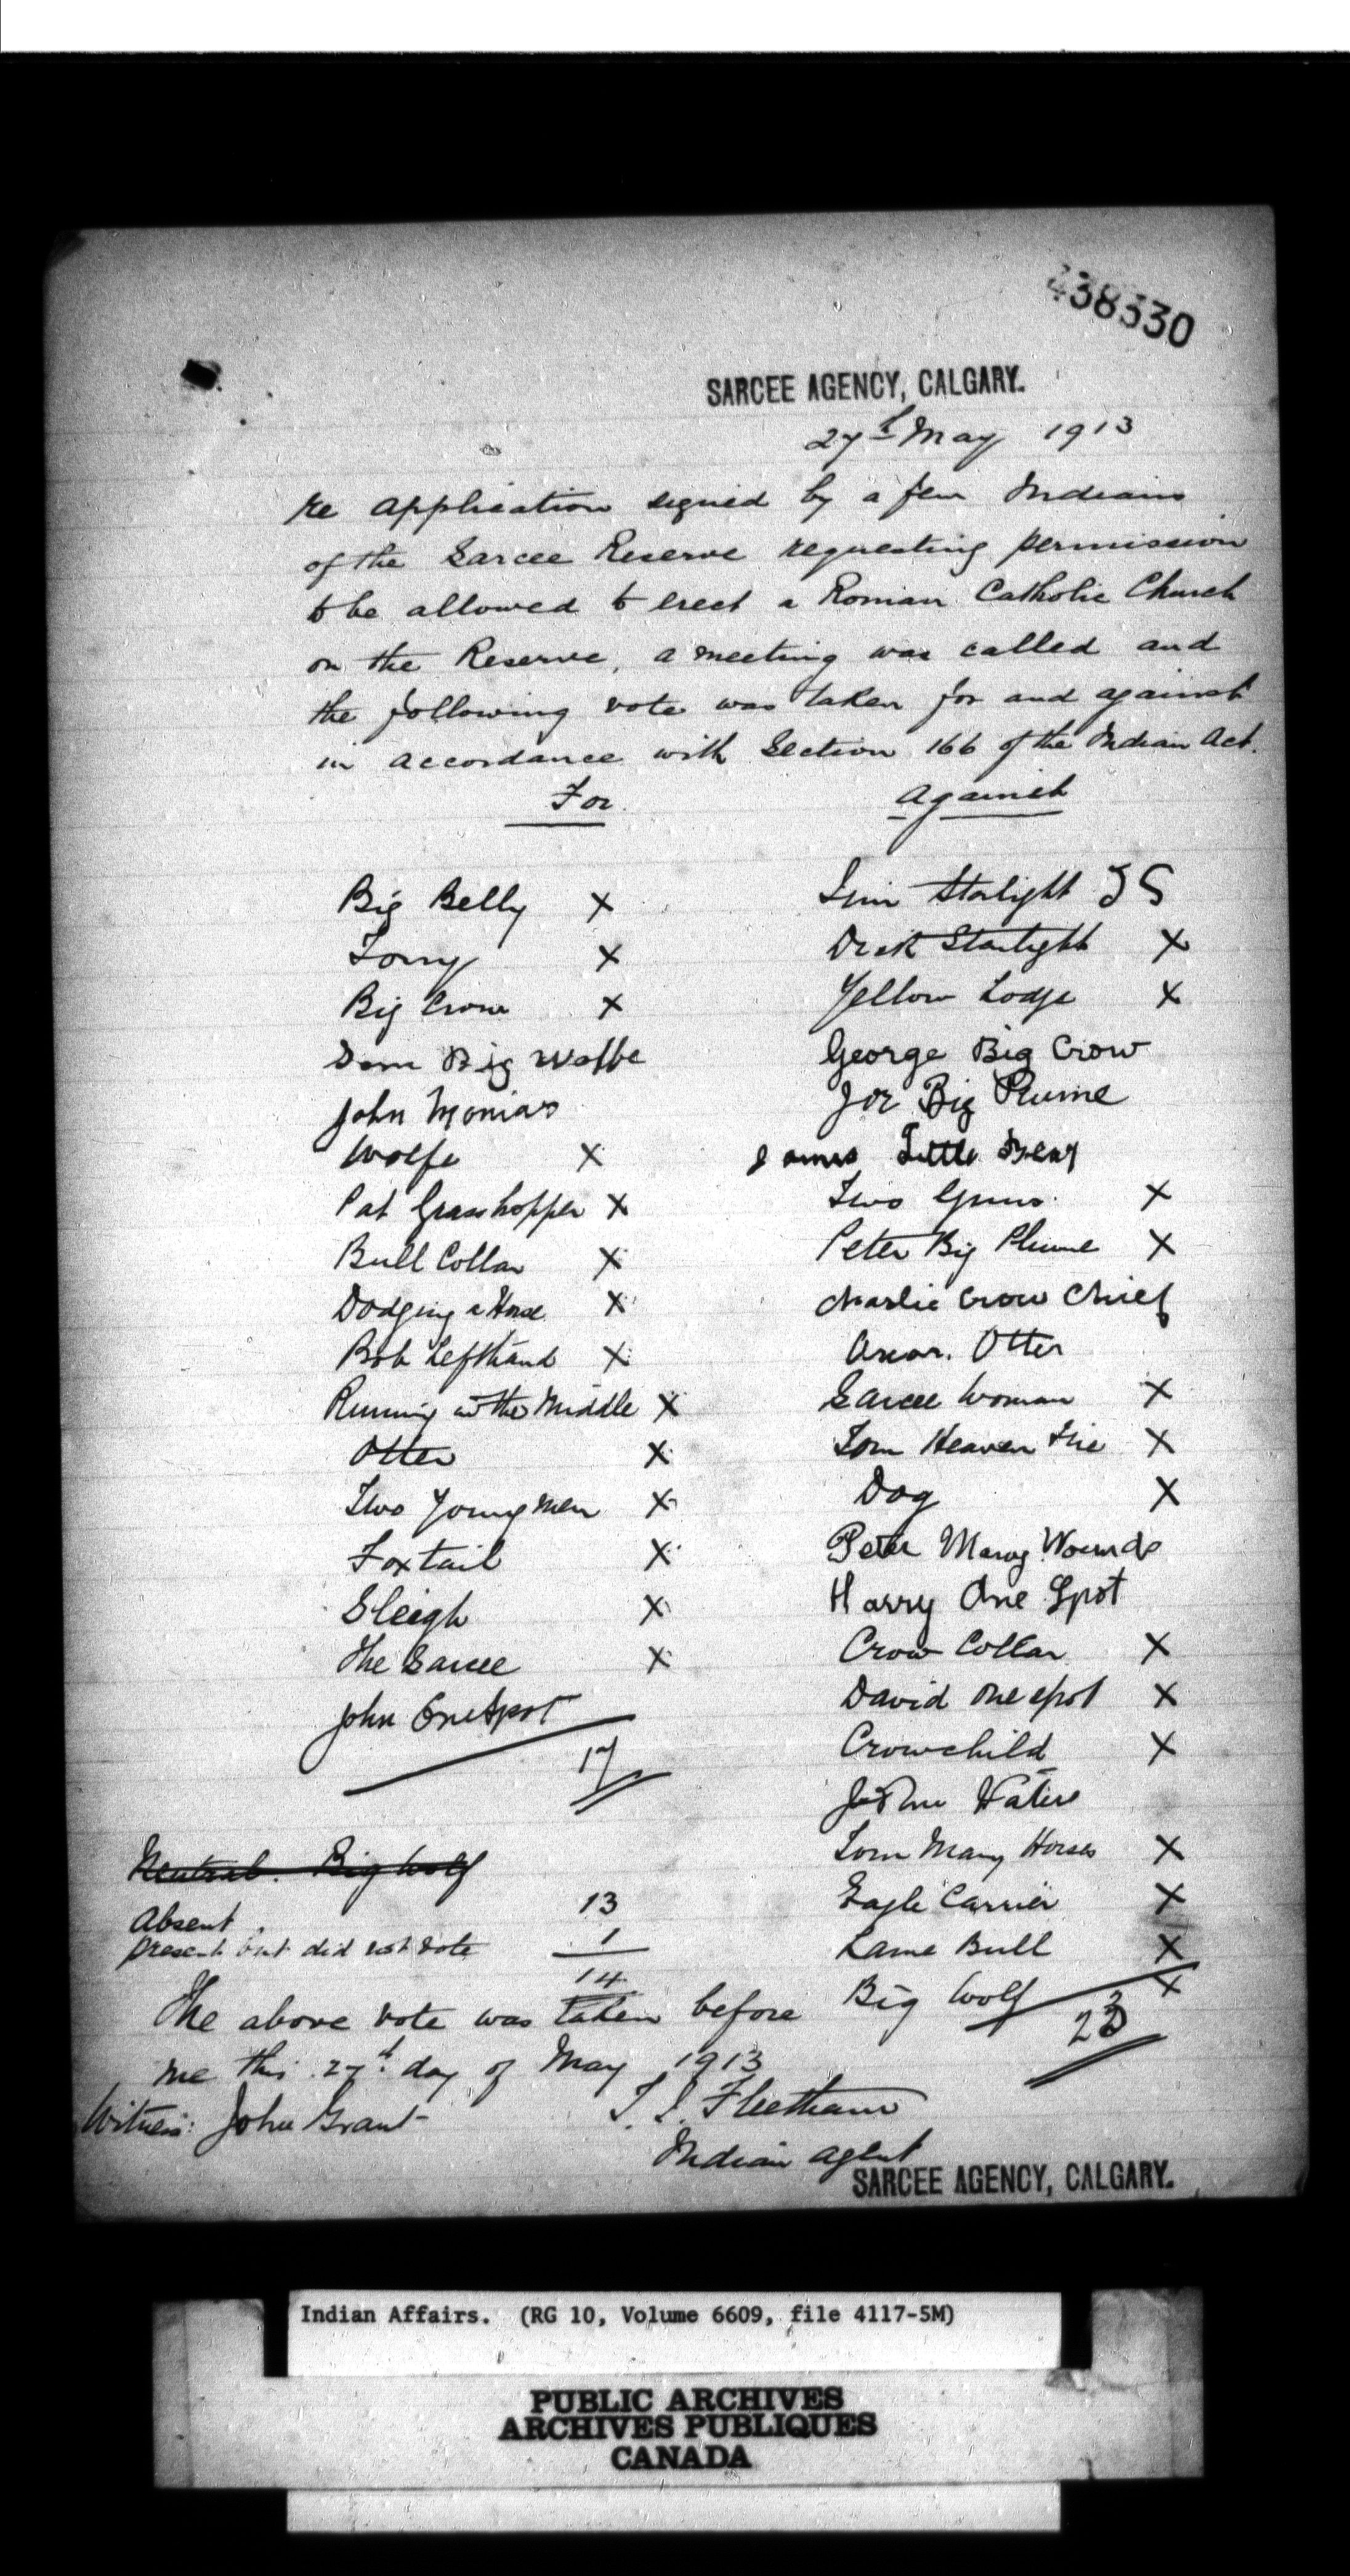 438330
SARCEE AGENCY, CALGARY.
27th May 1913
re application signed by a few Indians
of the Sarcee Reserve requesting permission
to be allowed to erect a Roman Catholic Church
on the Reserve, a meeting was called and
the following vote was taken for and against
in accordance with Section 166 of the Indian Act.
For. Against
Big Belly X
Tony X
Big Crow X
Big Wolfe
John Monias
Wolfe X
Pat Grasshopper X
Bull Collar X
Dodging a Horse X
Bob Lefthand X
Running in the Middle X
Otter X
Two Young Men X
Foxtail X
Sleigh X
The Sarcee X
John OneSpot
17
Jim Starlight JS
Dick Starlight X
Yellow Lodge X
George Big Crow
Joe Big Plume
James Little Bear
Two Guns X
Peter Big Plume X
Charlie Crow Chief
Oscar. Otter
Sarcee Woman X
Tom Heaven Fire X
Dog X
Peter Many Wounds
Harry One Spot
Crow Collar X
David One Spot X
Crowchild X
Waters
Tom Many Horses X
Eagle Carrier X
Lame Bull X
Big Wolf X
23
Neutral. Big Wolf
Absent. 13
Present but did not vote 1
14
The above vote was taken before
me this 27th day of May 1913
Witness: John Grant T. J. Fleetham
Indian Agent
SARCEE AGENCY, CALGARY.
Indian Affairs. (RG 10, Volume 6609, file 4117-5M)
PUBLIC ARCHIVES
ARCHIVES PUBLIQUES
CANADA